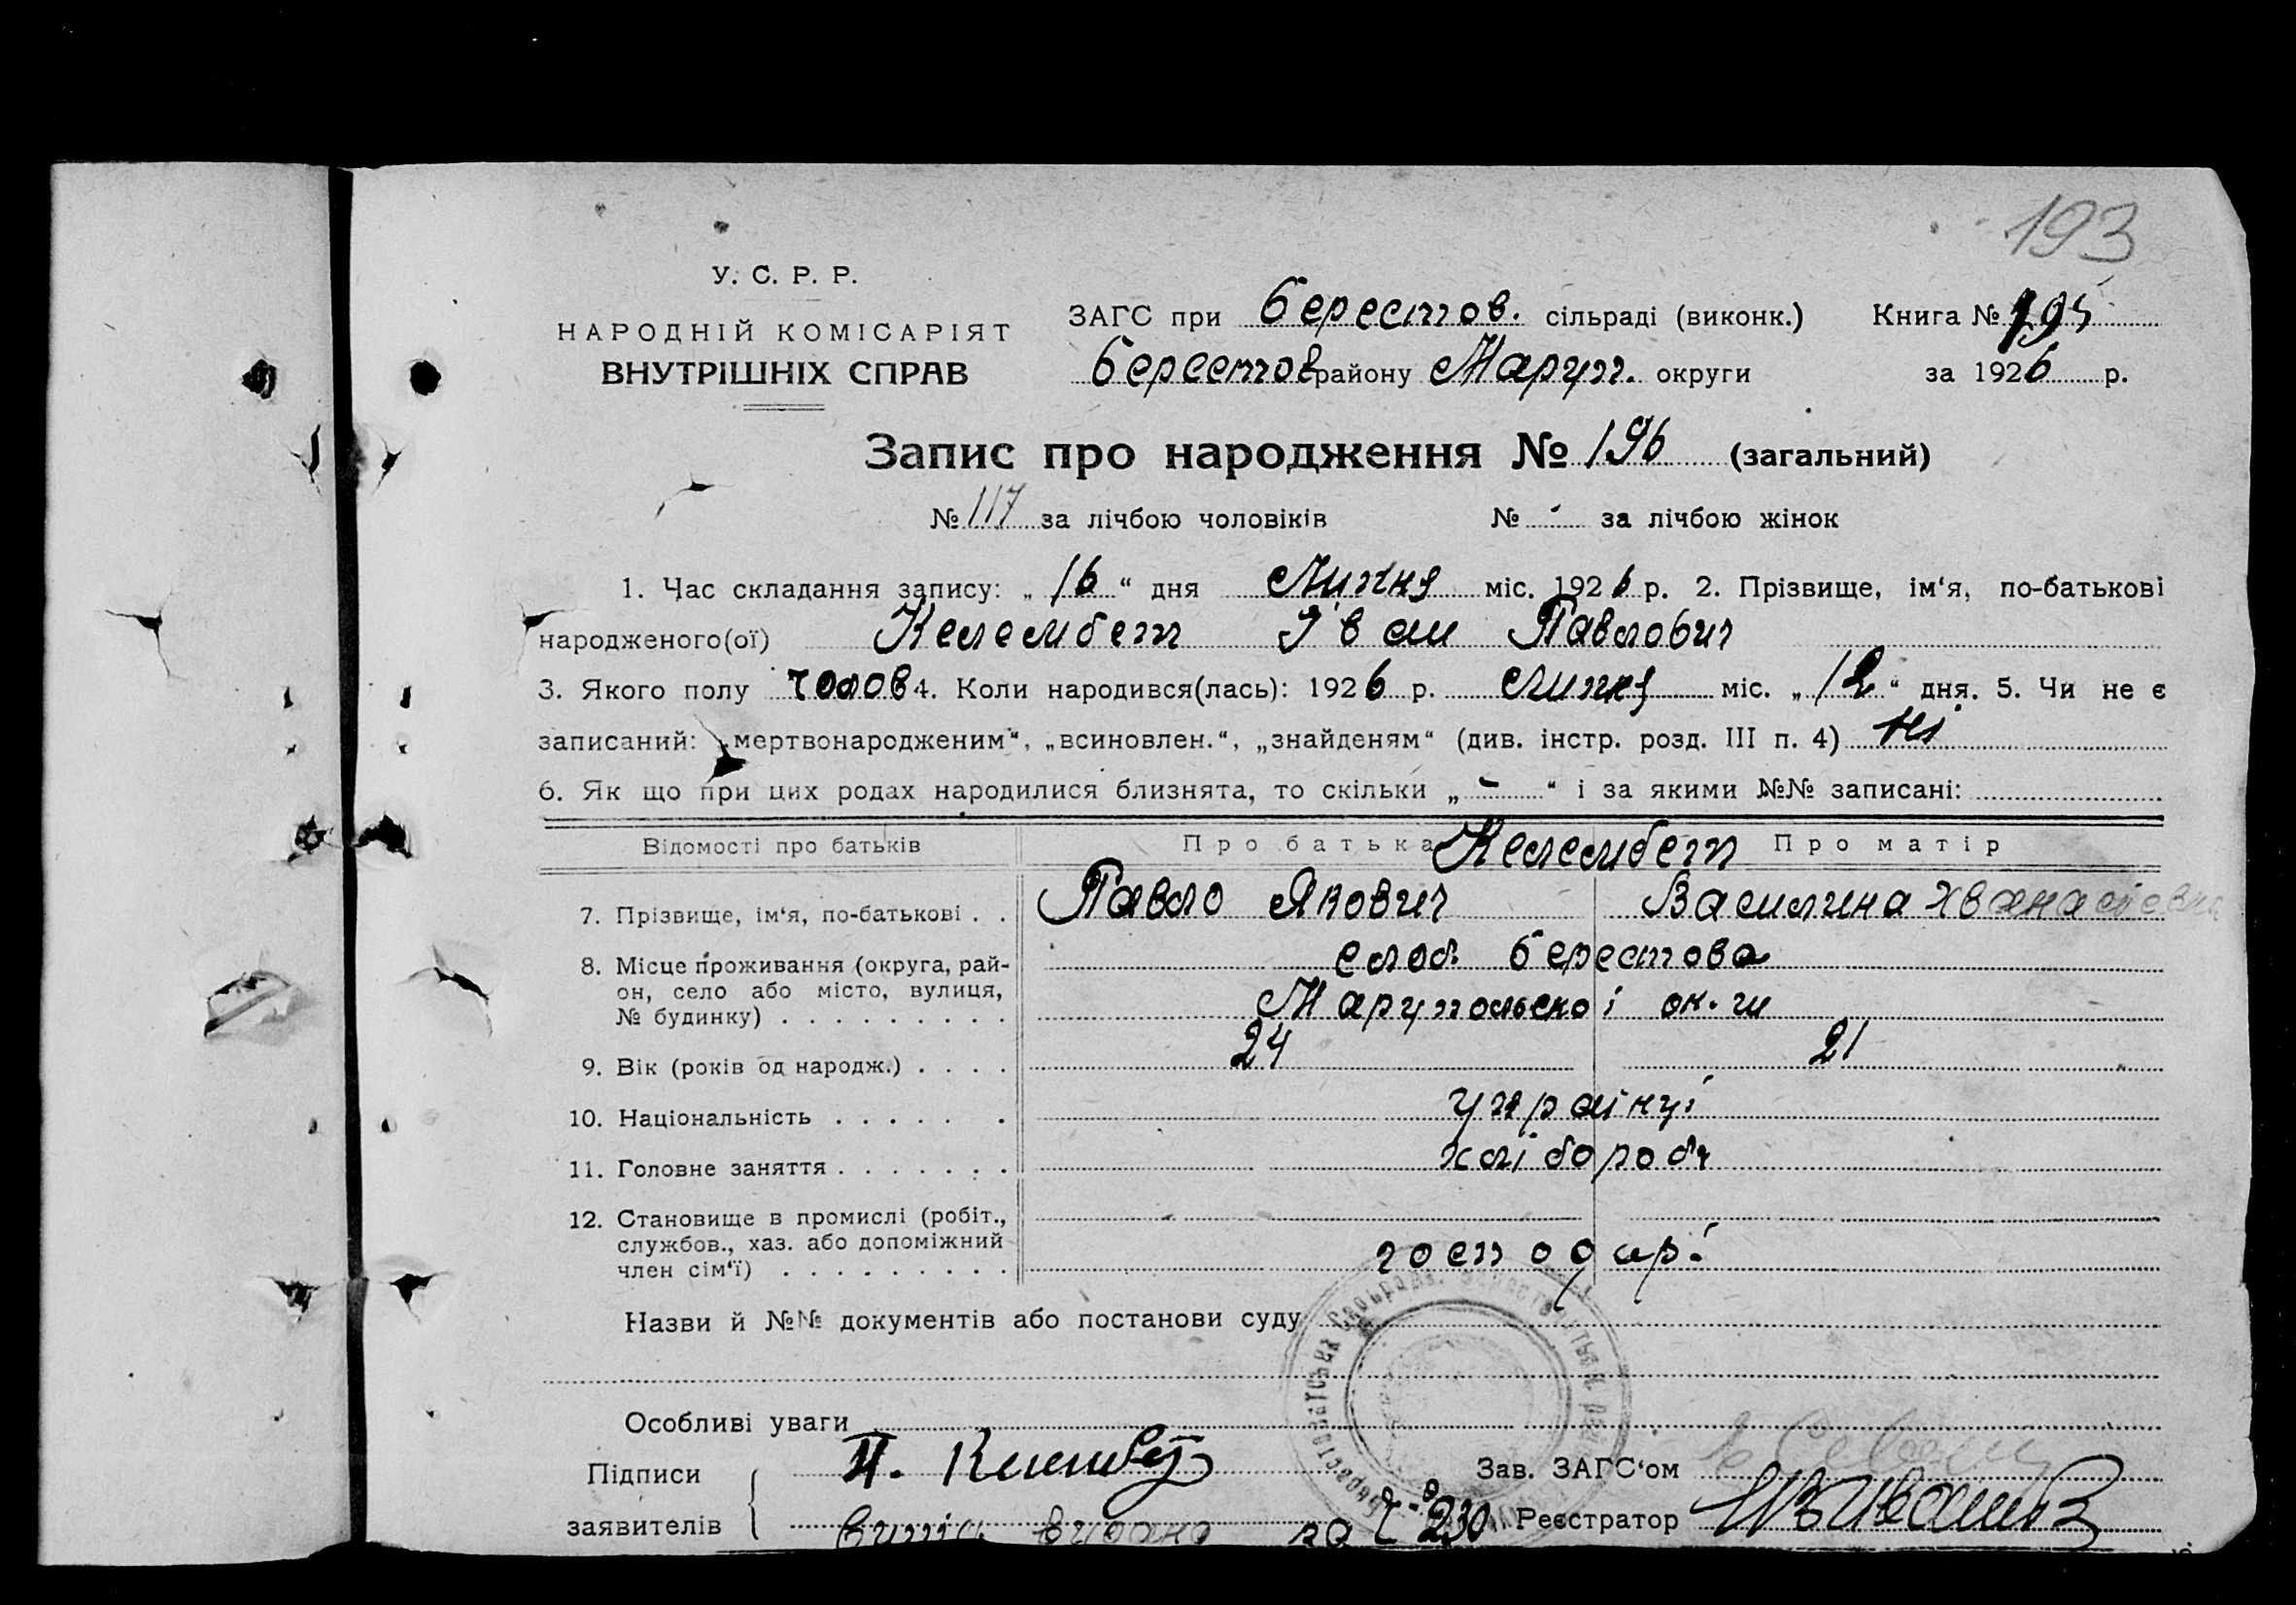 193
У. С. Р. Р.
НАРОДНІЙ КОМІСАРІЯТ
ВНУТРІШНІХ СПРАВ
ЗАГС при Берестов. сільраді (виконк.) Книга № 195
Берестов району Маруп. округи за 1926 р.
Запис про народження № 196 (загальний)
№ 117 за лічбою чоловіків № - за лічбою жінок
1. Час складання запису: „ 16 “ дня Липня міс. 1926 р. 2. Прізвище, ім‘я, по-батькові
народженого(ої) Келембет Іван Павлович
3. Якого полу чолов 4. Коли народився(лась): 1926 р. Липня міс. „ 12 “ дня. 5. Чи не є
записаний: „мертвонародженим“, „всиновлен.“, „знайденям“ (див. інстр. розд. III п. 4) Ні
6. Як що при цих родах народилися близнята, то скільки „ - “ і за якими №№ записані:
Відомості про батьків Про батька Келембет Про матір
7. Прізвище, ім‘я, по-батькові . . Павло Якович Василина Хванасіевна
8. Місце проживання (округа, рай-
он, село або місто, вулиця,
№ будинку) . . . . . . . . .
слоб. Берестова
Марупольскоі ок.ги
9. Вік (років од народж.) . . . . 24 21
10. Національність . . . . . . украінці
11. Головне заняття . . . . . . . хлібороби
12. Становище в промислі (робіт.,
службов., хаз. або допоміжний
член сім‘ї) . . . . . . . . .
господарі
Назви й №№ документів або постанови суду
Особливі уваги
Підписи
заявителів
П.
Зав. ЗАГС‘ом
видано № 230 Реєстратор